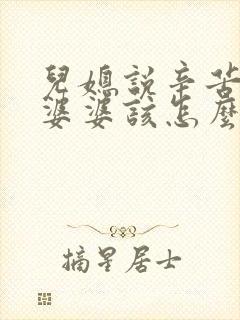 兒媳說辛苦
婆婆該怎麼
摘星居士